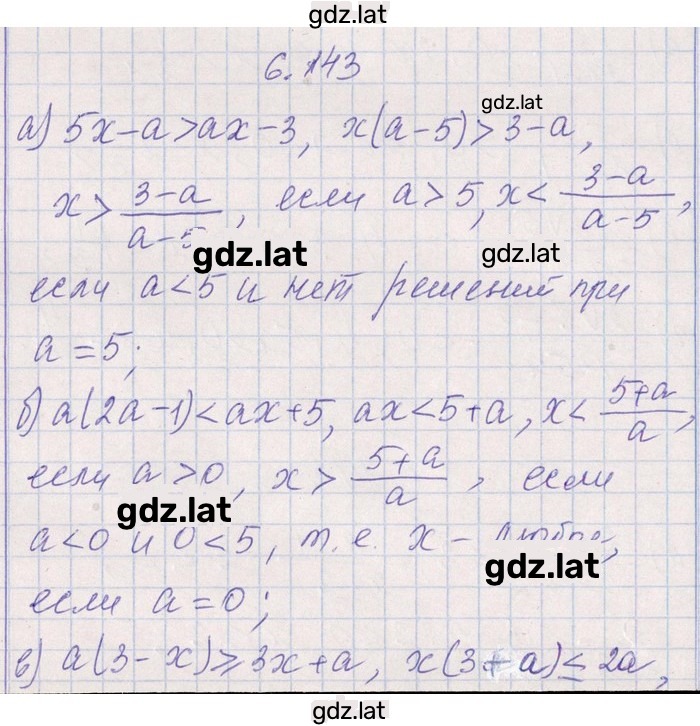 gdz.lat
6.143
gdz.lat
а) 5x-a>ax-3, x(a-5)>3-a,
x> (3-a)/(a-5), если a>5, x< (3-a)/(a-5),
gdz.lat
gdz.lat
если a<5 и нет решений при
a=5;
б) a(2a-1)<ax+5, ax<5+a, x< (5+a)/a,
если a>0, x> (5+a)/a, если
gdz.lat
a<0 и 0<5, т.е. x -
gdz.lat
если a=0;
в) a(3-x)≥3x+a, x(3+a)≤2a,
gdz.lat